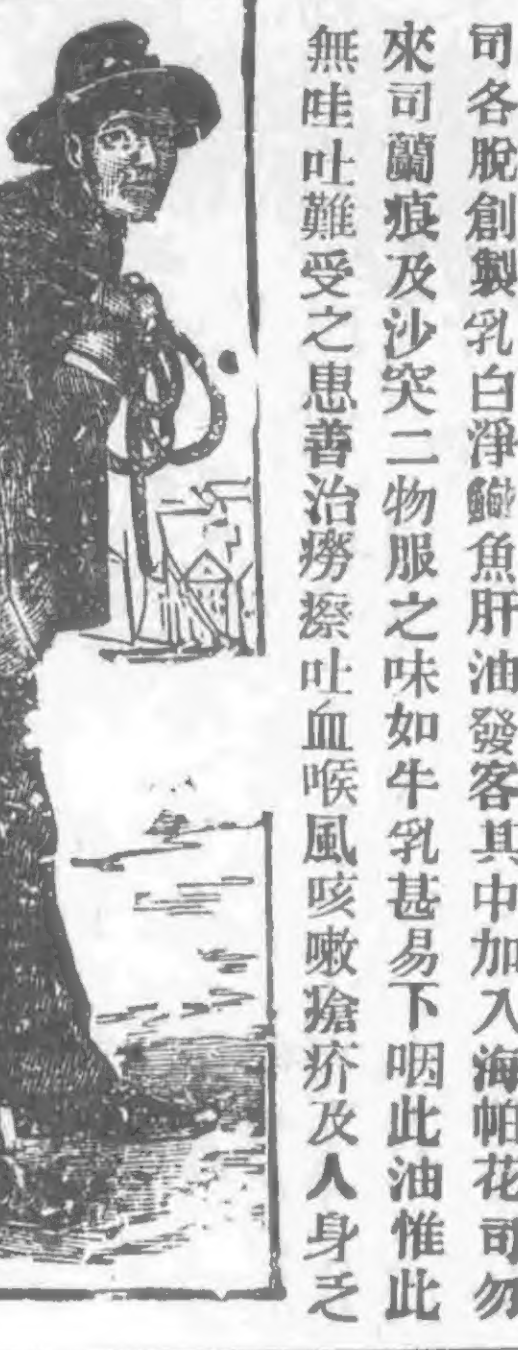 司各脫創製乳白淨鰵魚肝油發客其中加入海帕花司勿
來司蘭痕及沙突二物服之味如牛乳甚易下咽此油惟此
無哇吐難受之患善治癆瘵吐血喉風咳嗽瘡疥及人身乏